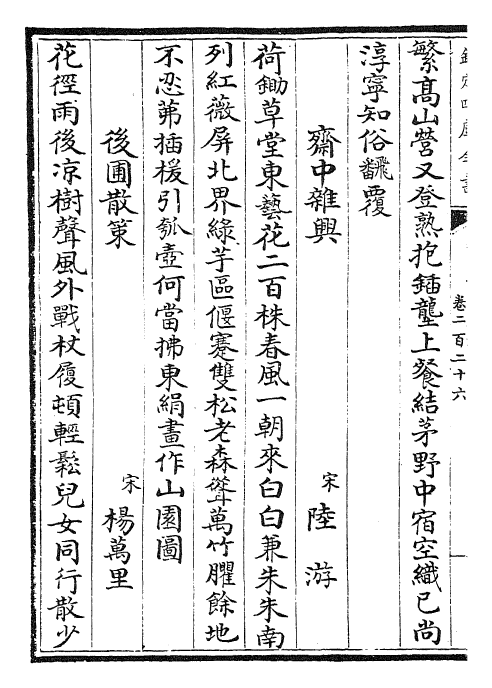 欽定四庫全書
卷二百二十六
繁高山營又登熟抱鍤壟上餐結茅野中宿空織已尚
淳寧知俗飜覆
齋中雜興
宋 陸 游
荷鋤草堂東藝花二百株春風一朝來白白兼朱朱南
列紅薇屏北界綠芋區偃蹇雙松老森聳萬竹臞餘地
不忍茀插援引瓠壺何當拂東絹畫作山園圖
後圃散策
宋 楊萬里
花徑雨後涼樹聲風外戰杖履頓輕鬆兒女同行散少